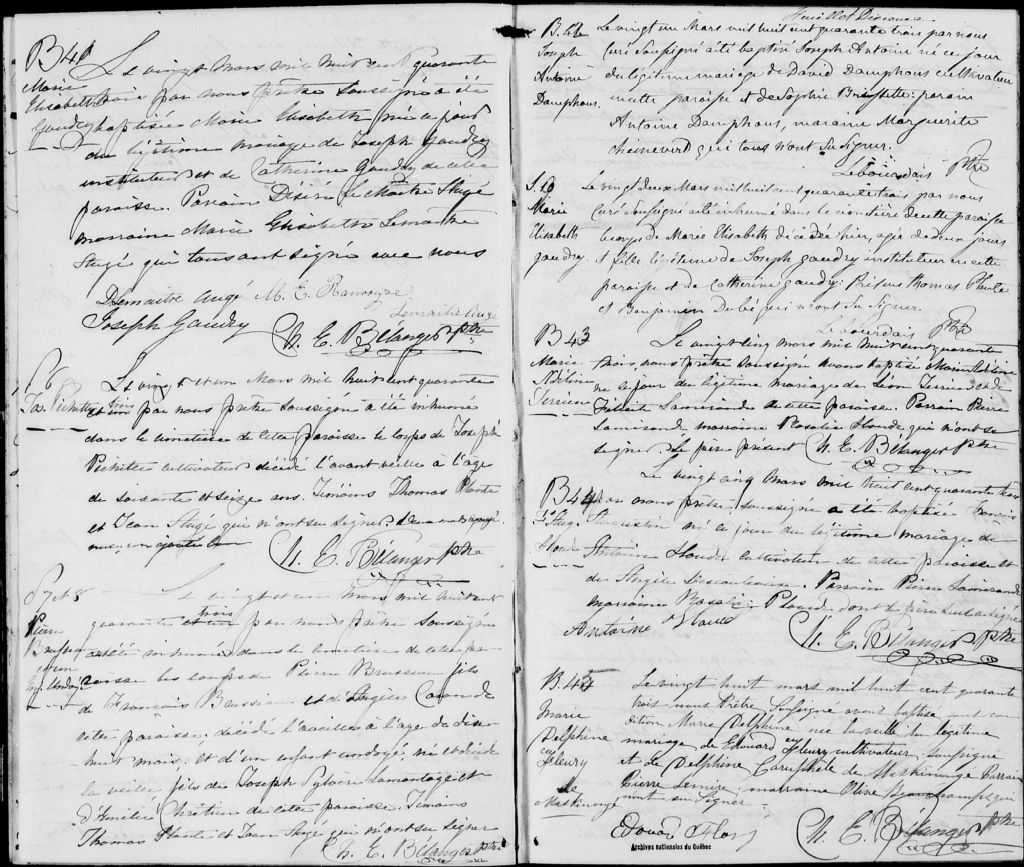 B 41
Marie
Elisabeth
Gaudry
Le vingt Mars mil huit cent quarante
trois par nous prêtre soussigné a été
baptisée Marie Elisabeth née ce jour
du légitime mariage de Joseph Gaudry
instituteur et de Catherine Gaudry de cette
paroisse. Parrain Désiré Lemaitre Augé
marraine Marie Elisabeth Lemaitre
Augé qui tous ont signé avec nous
D Lemaitre Augé M. E.
Lemaitre Augé
Joseph Gaudry N. E. Bélanger ptre
Jos. Pichette
Le vingt et un Mars mil huit cent quarante
trois par nous prêtre soussigné a été inhumé
dans le cimetière de cette paroisse le corps de Joseph
Pichette cultivateur décédé l'avant veille à l'âge
de soixante et seize ans. Témoins Thomas Plante
et Jean Augé qui n'ont su signer.
N. E. Bélanger ptre
S 7 et 8
Pierre
Le vingt et un Mars mil huit cent
quarante trois par nous prêtre soussigné
a été inhumé dans le cimetière de cette pa-
roisse les corps de Pierre Brusseau fils
de François et d'
cette paroisse, décédé la veille à l'age de dix
huit mois, et d'un enfant ondoyé, né et décédé
la veille fils de Joseph Sylvère Lamontagne et
d'Aurélie Chrétien de cette paroisse. Témoins
Thomas Plante et Jean Augé qui n'ont su signer
N. E. Bélanger ptre
Feuillet Dixième
B. 42
Joseph
Antoine
Damphous.
Le vingt un Mars mil huit cent quarante trois par nous
Curé Soussigné a été baptisé Joseph Antoine né ce jour
du légitime mariage de David Damphous cultivateur
en cette paroisse et de Sophie : parain
Antoine Damphous, maraine Marguerite
Chenevert qui tous n'ont su signer.
Lebourdais Ptre
S. 10
Marie
Elisabeth
gaudry.
Le vingt deux Mars mil huit cent quarante trois par nous
Curé Soussigné a été inhumé dans le cimetière de cette paroisse
le corps de Marie Elisabeth décédée hier, agée de deux jours
et fille légitime de Joseph gaudry instituteur en cette
paroisse et de Catherine gaudry: Présens Thomas Plante
et Benjamin qui n'ont su signer.
Lebourdais Ptre
B 43
Marie
Adéline
Terrien
Le vingt cinq mars mil huit cent quarante
trois, nous prêtre soussigné avons baptisé Marie Adéline
née ce jour du légitime mariage de Léon Terrien et de
Lamirande de cette paroisse. Parrain Pierre
Lamirande marraine Rosalie Houde qui n'ont su
signer, le père présent N. E. Bélanger ptre
B 44
Frs. Aug.
Houde
Le vingt cinq mars mil huit cent quarante trois
par nous prêtre soussigné a été baptisé François
Augustin né ce jour du légitime mariage de
Antoine Houde cultivateur de cette paroisse et
de Angèle Descouteaux. Parrain Pierre Lamirande
marraine Rosalie Houde dont le père seul a signé
Antoine Houde N. E. Bélanger ptre
B. 45
Marie
Delphine
Fleury
de
Maskinongé
Le vingt huit mars mil huit cent quarante
trois nous Prêtre Soussigné avons baptisé sous con-
dition Marie Delphine née la veille du légitime
mariage de Edouard Fleury cultivateur soussigné
et de Delphine de Maskinongé Parrain
Pierre Lemire, marraine Olive Beauchamp qui
n'ont su signer
Edouar Flory N. E. Bélanger ptre
Archives nationales du Québec